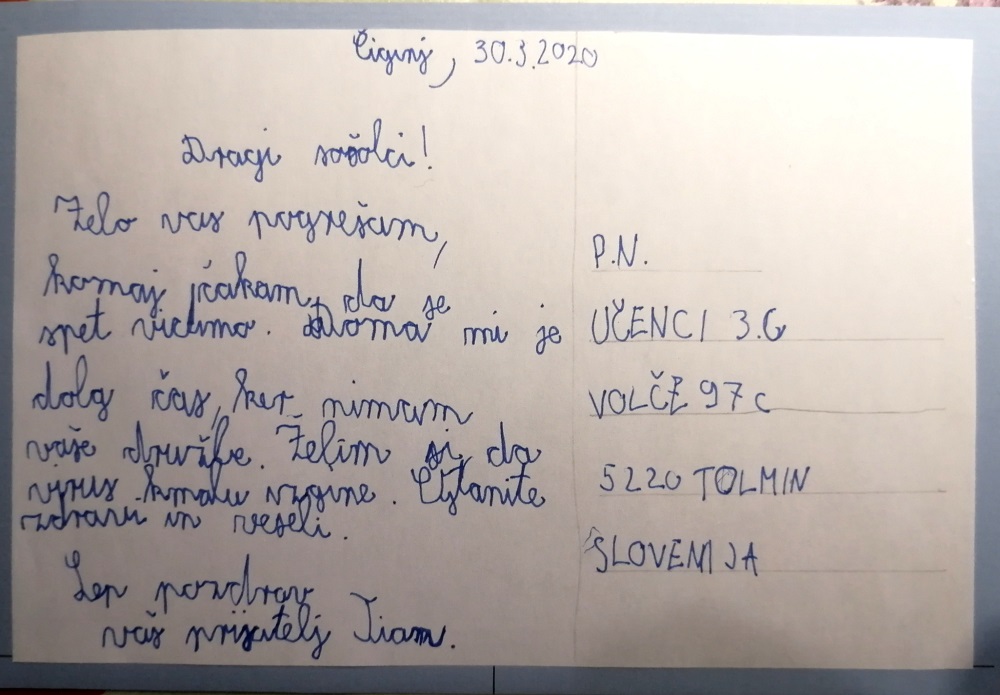 Čiginj, 30.3.2020
Dragi sošolci!
Zelo vas pogrešam,
komaj čakam, da se
spet vidimo. Doma mi je
dolg čas, ker nimam
vaše družbe. Želim si, da
virus kmalu izgine. Ostanite
zdravi in veseli.
Lep pozdrav
vaš prijatelj Tiam.
P.N.
UČENCI 3.G
VOLČE 97c
5220 TOLMIN
SLOVENIJA